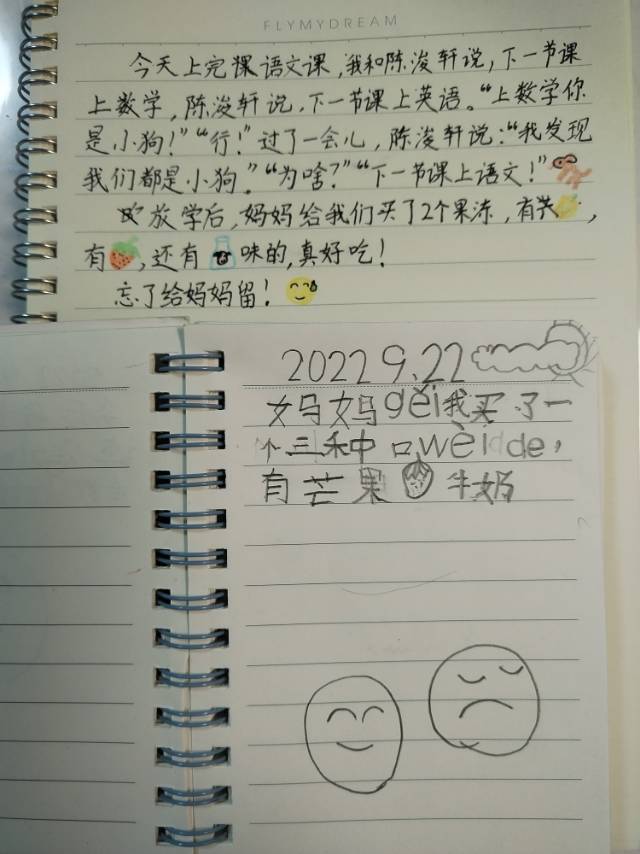 FLYMYDREAM
今天上完课语文课,我和陈浚轩说,下一节课
上数学,陈浚轩说,下一节课上英语。“上数学你
是小狗!”“行!”过了一会儿,陈浚轩说:“我发现
我们都是小狗。”“为啥?”“下一节课上语文!”
放学后,妈妈给我们买了2个果冻,有,
有,还有味的,真好吃!
忘了给妈妈留!
2022 9.22
妈妈gěi我买了一
个三种口wèide,
有芒果牛奶